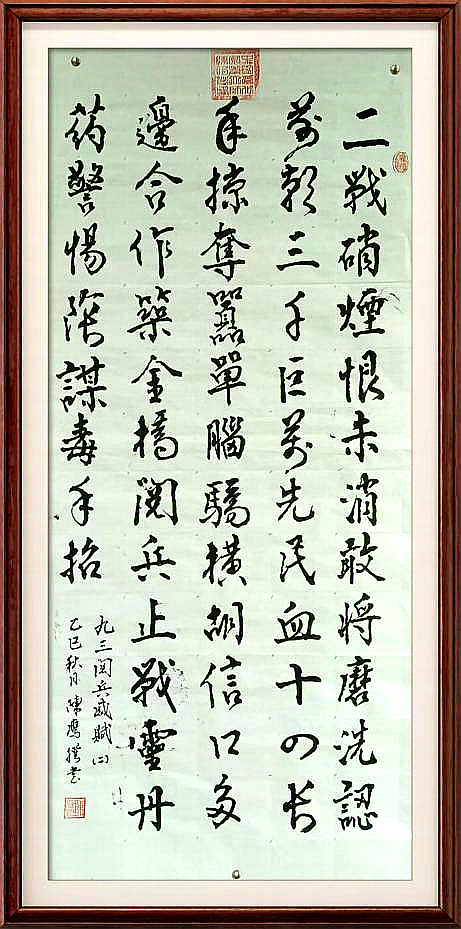 二戰硝煙恨未消敢将磨洗認
前朝三千巨萬先民血十四長
年掠奪囂單腦驕橫胡信口多
邊合作築金橋閱兵止戰靈丹
药警惕陰謀毒手招
九三阅兵感賦(二)
乙巳秋月陳鹰撰書